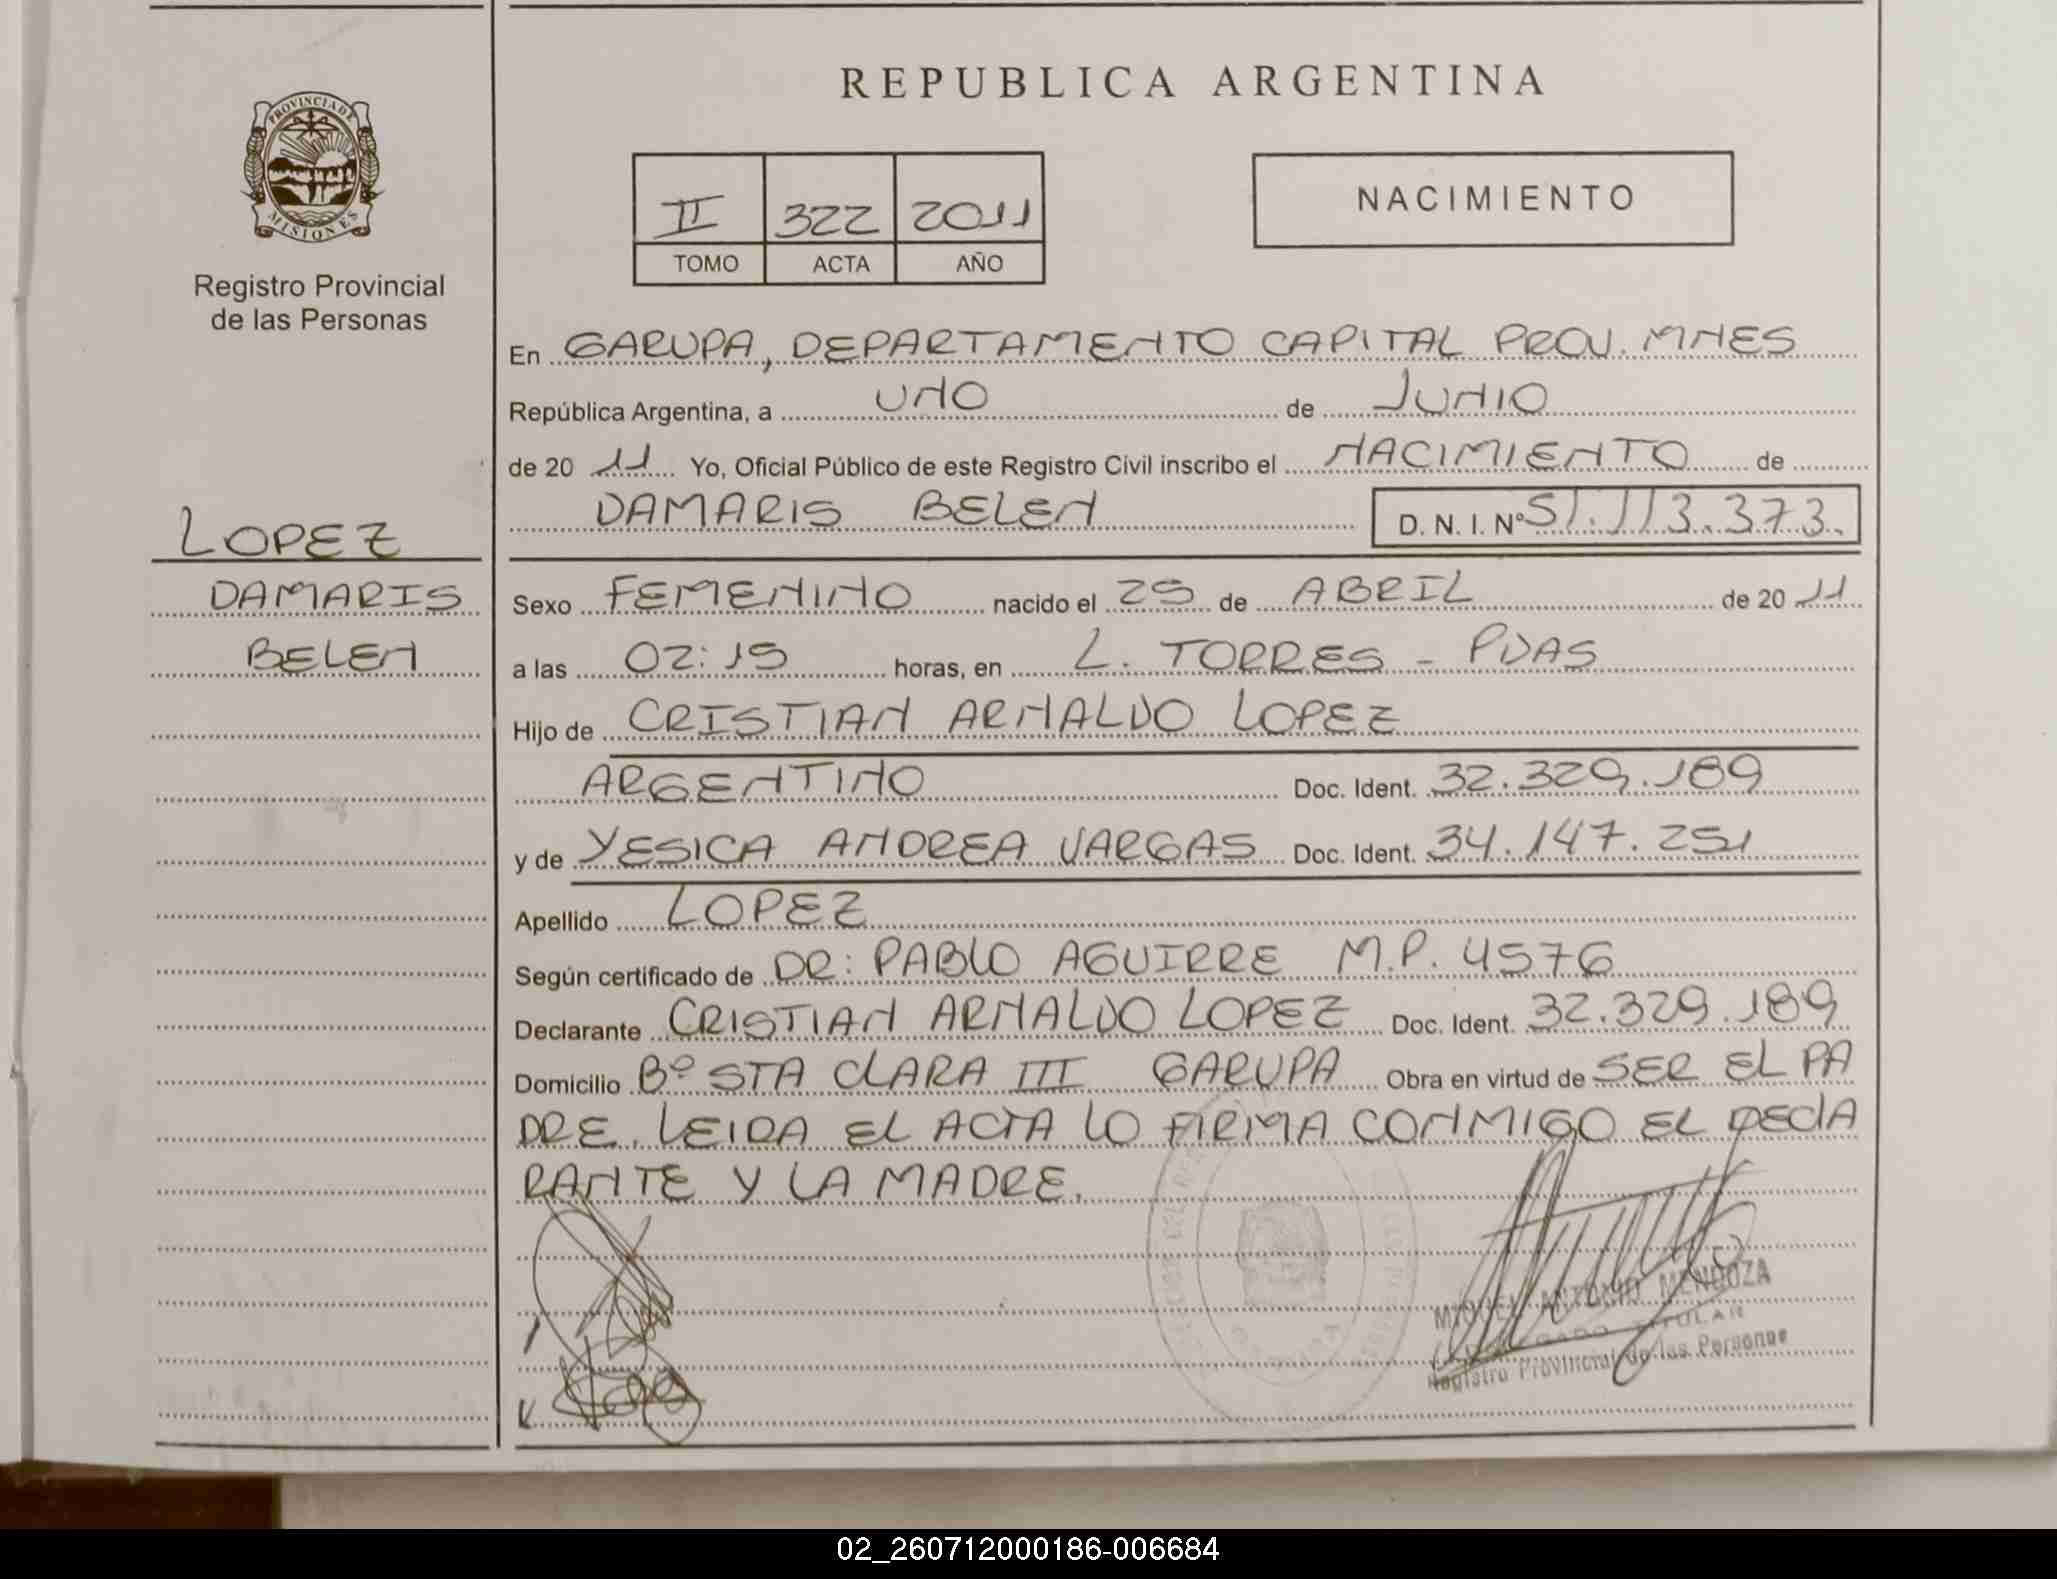 REPUBLICA ARGENTINA
PROVINCIA DE
MISIONES
Registro Provincial
de las Personas
II 322 2011
TOMO ACTA AÑO
NACIMIENTO
En GARUPA, DEPARTAMENTO CAPITAL PROV. MNES
República Argentina, a UNO de JUNIO
de 2011 Yo, Oficial Público de este Registro Civil inscribo el NACIMIENTO de
DAMARIS BELEN D. N. I. Nº 51.113.373.
LOPEZ
DAMARIS
BELEN
Sexo FEMENINO nacido el 25 de ABRIL de 2011
a las 02:15 horas, en L. TORRES - PDAS
Hijo de CRISTIAN ARNALDO LOPEZ
ARGENTINO Doc. Ident. 32.329.189
y de YESICA ANDREA VARGAS Doc. Ident. 34.147.251
Apellido LOPEZ
Según certificado de DR: PABLO AGUIRRE M.P. 4576
Declarante CRISTIAN ARNALDO LOPEZ Doc. Ident. 32.329.189
Domicilio Bº STA CLARA III GARUPA Obra en virtud de SER EL PA
DRE. LEIDA EL ACTA LO FIRMA CONMIGO EL DECLA
RANTE Y LA MADRE.
MIGUEL ANTONIO MENDOZA
TITULAR
Registro Provincial de las Personas
02_260712000186-006684